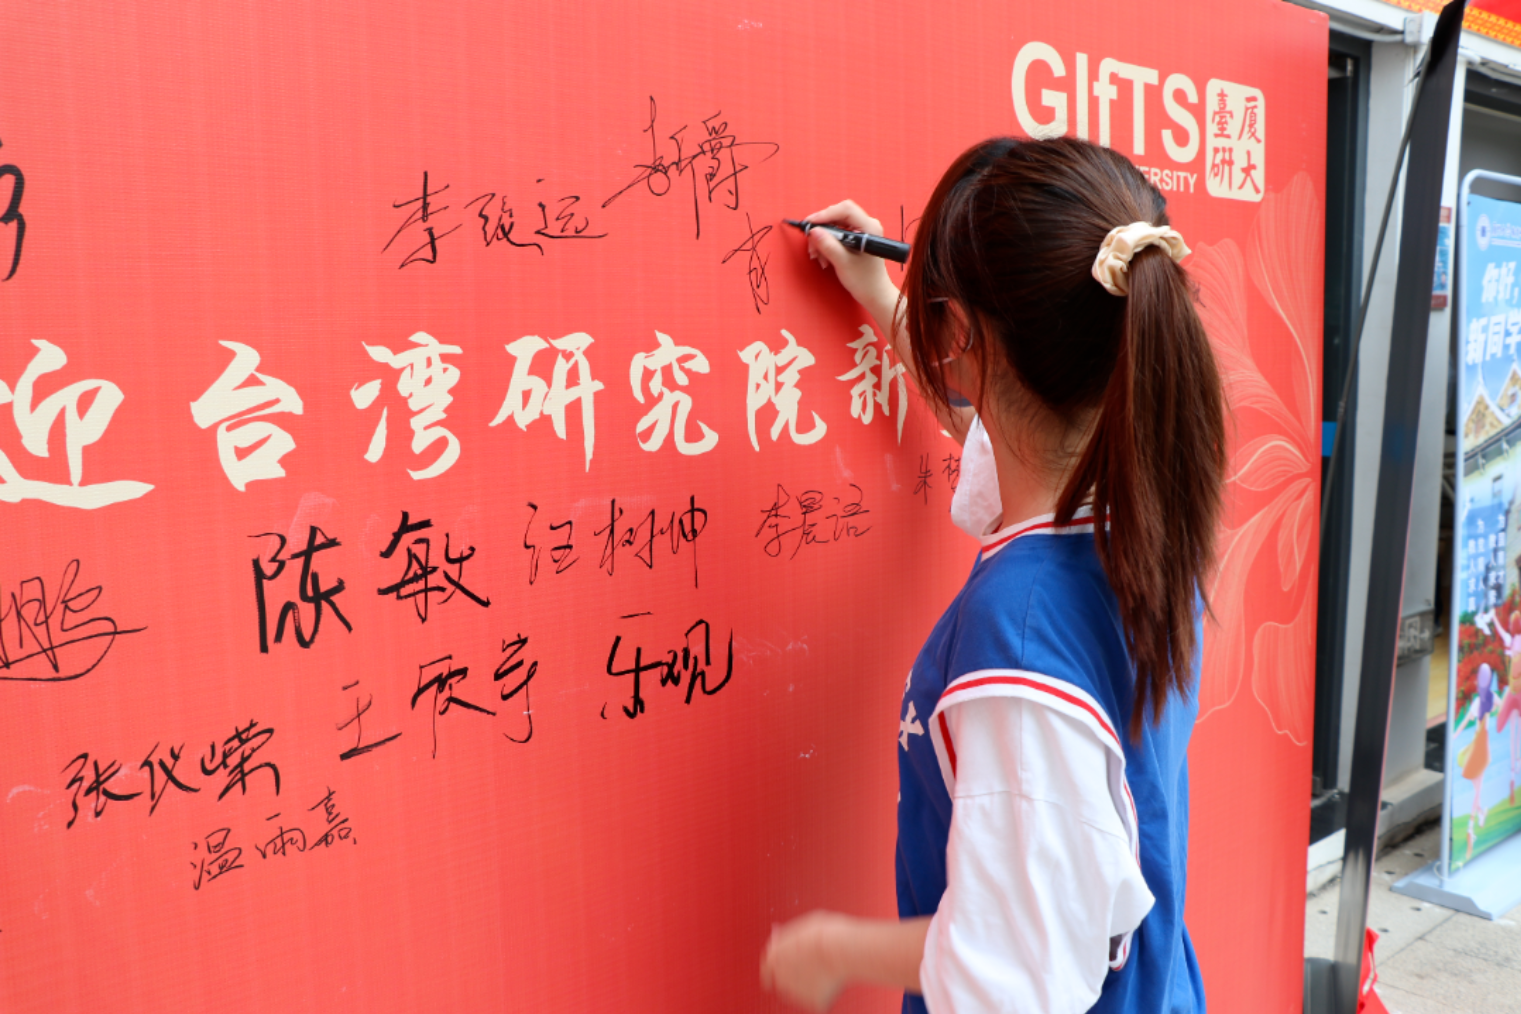 GIfTS
臺厦
研大
ERSITY
李致远
肖
迎台湾研究院新
朱
陈敏
汪树坤
李晨语
鹏
王雯宇
乐观
张仪嵘
温雨嘉
你好,
新同学